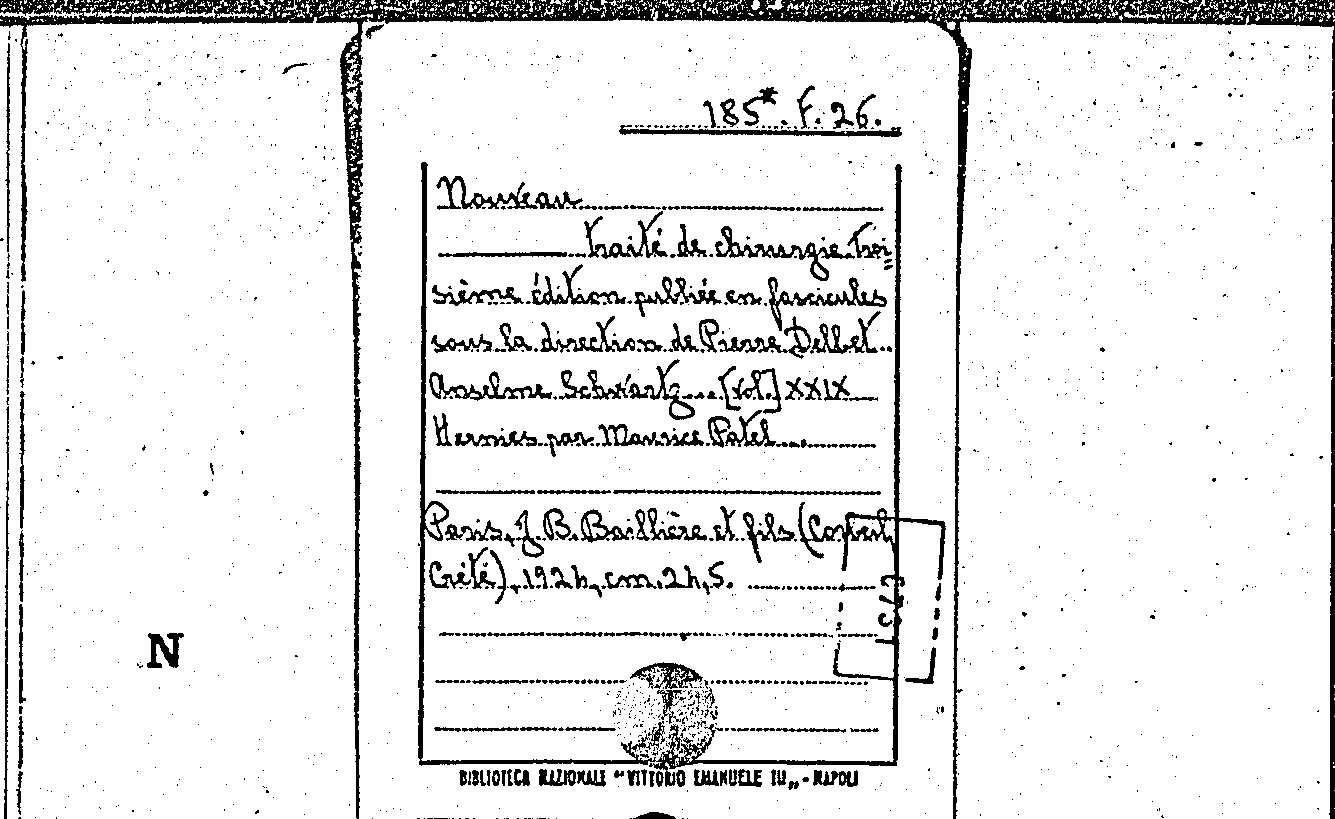 185*. F. 26.
Nouveau
traité de chirurgie. Troi=
sième édition publiée en fascicules
sous la direction de Pierre Delbet..
Anselme Schwartz... [vol.] XXIX
Hernies par Maurice Patel....
Paris, J. B. Baillière et fils (Corbeil,
Crété), 1924, cm. 24,5.
N
BIBLIOTECA NAZIONALE "VITTORIO EMANUELE III„ - NAPOLI